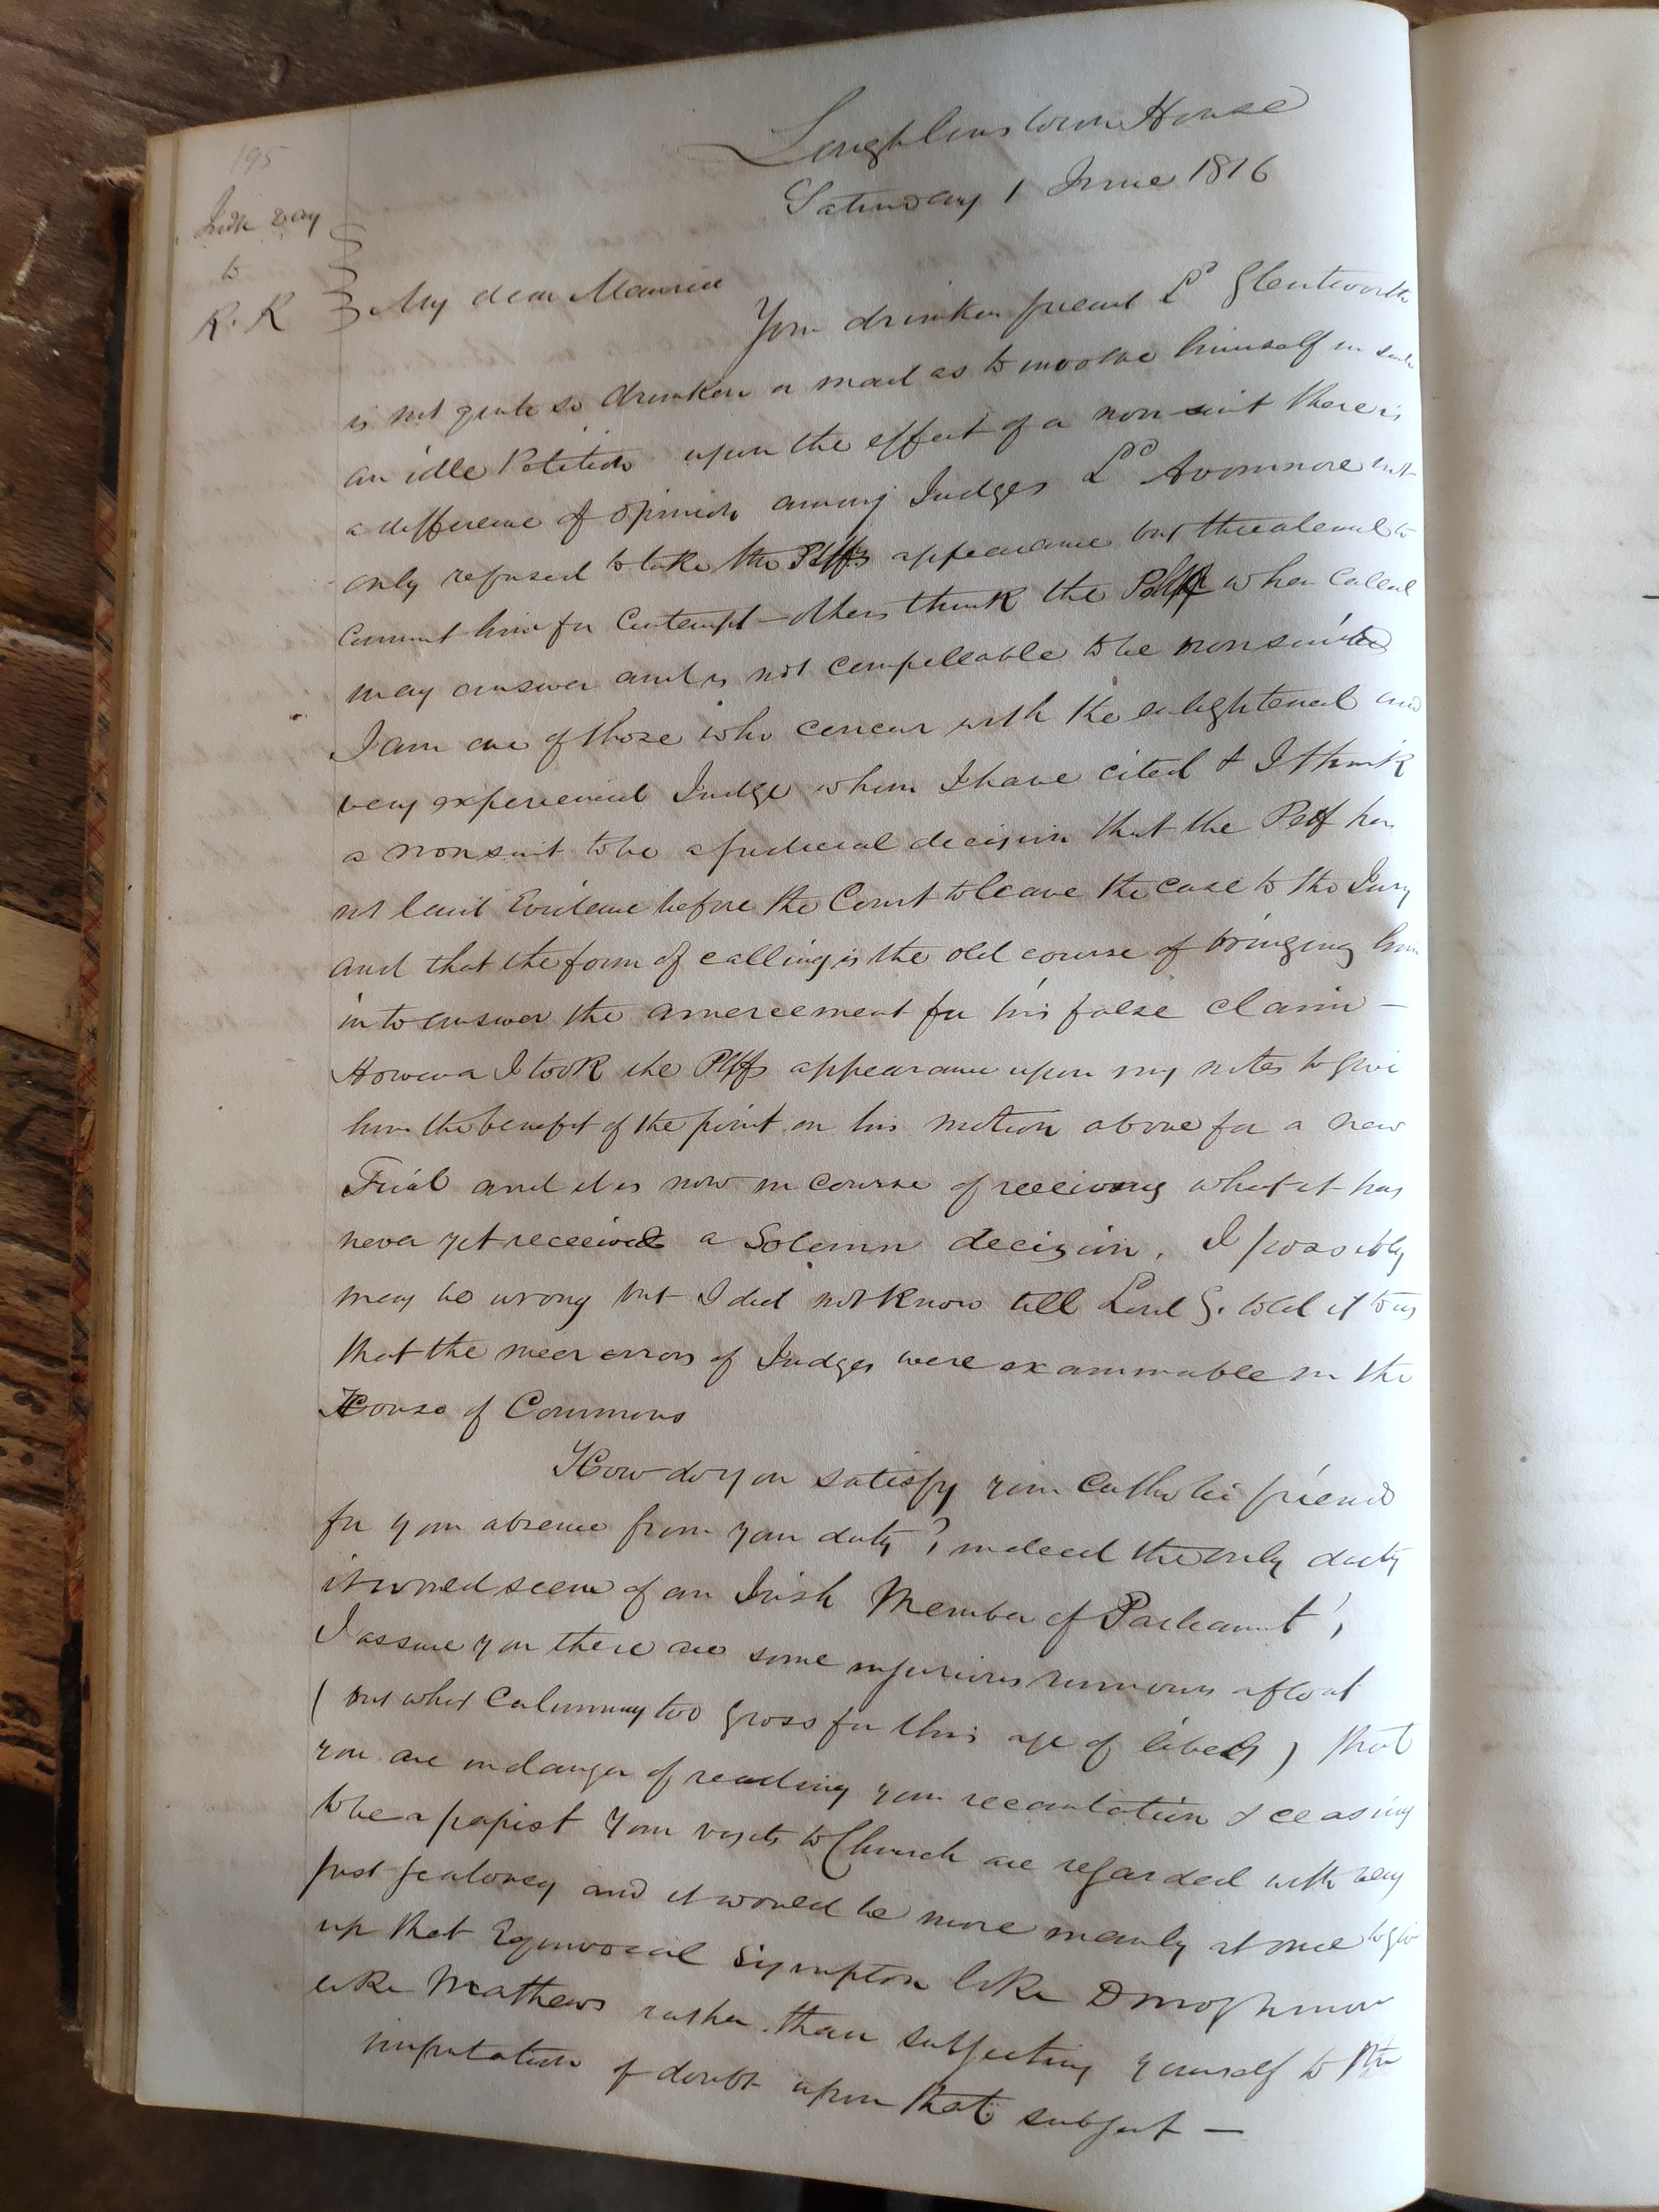 195
Judge Day
to
R. R
Loughlinstown House
Saturday 1 June 1816
My dear Maurice
Your drunken friend Ld Glentworth
is not quite so drunken or mad as to involve himself in such
an idle Petition upon the effect of a non-suit there is
a difference of opinion among Judges Ld Avonmore not
only refused to take the Pltffs appearance but threatened to
commit him for Contempt - others think the Pltff when called
may answer and is not compellable to be nonsuited
I am one of those who concur with the enlightened and
very experienced Judge whom I have cited & I think
a nonsuit to be a judicial decision that the Pltf has
not laid Evidence before the Court to leave the case to the Jury
and that the form of calling is the old course of bringing him
in to answer the amercement for his false claim -
However I took the Pltfs appearance upon my notes to give
him the benefit of the point on his motion above for a new
Trial and it is now in course of receiving what it has
never yet received a Solemn decision. I possibly
may be wrong but I did not know till Lord G. told it to us
that the meer errors of Judges were examinable in the
House of Commons
How do you satisfy your Catholic friend
for your absence from your duty? indeed the only duty
it would seem of an Irish Member of Parliament!
I assure you there are some injurious rumours afloat
( but what Calumny too gross for this age of libels ) that
you are in danger of reading your recantation & ceasing
to be a papist Your visits to Church are regarded with very
just jealousy and it would be more manly at once to give
up that Equivocal Symptom like Donoghmore
like Mathews rather than subjecting yourself to the
imputation of doubt upon that subject -